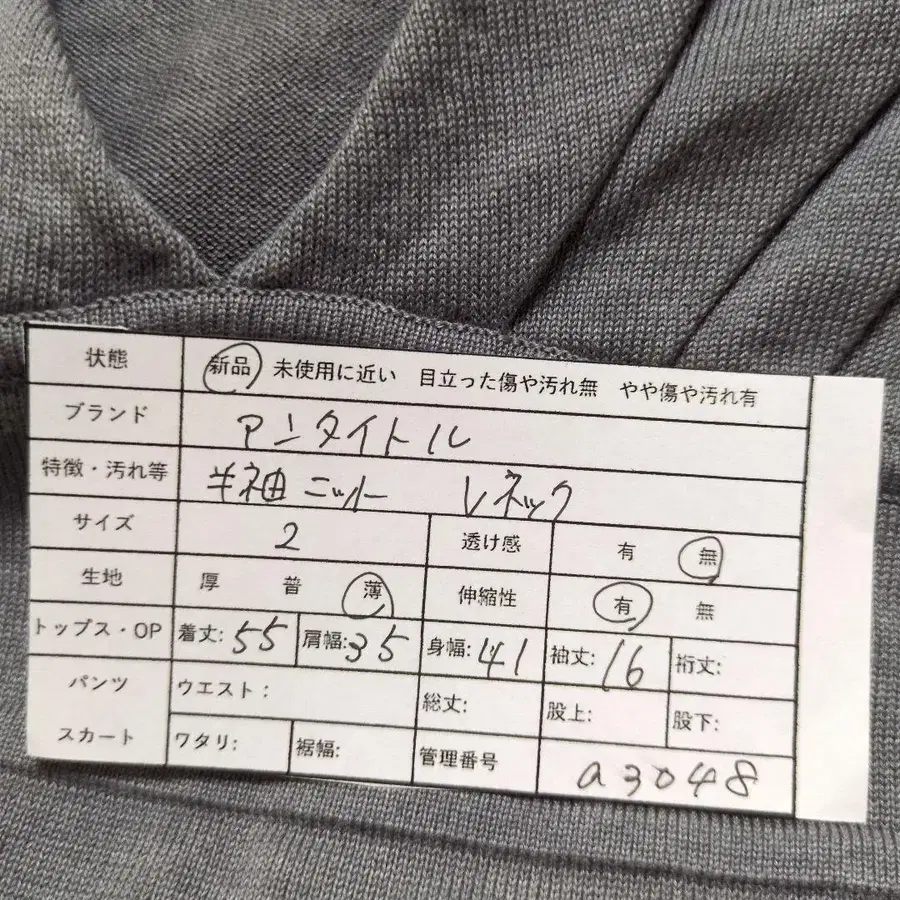 状態 新品 未使用に近い 目立った傷や汚れ無 やや傷や汚れ有
ブランド アンタイトル
特徴・汚れ等 半袖ニット Vネック
サイズ 2 透け感 有 無
生地 厚 普 薄 伸縮性 有 無
トップス・OP 着丈:55 肩幅:35 身幅:41 袖丈:16 裄丈:
パンツ ウエスト: 総丈: 股上: 股下:
スカート ワタリ: 裾幅: 管理番号 a3048